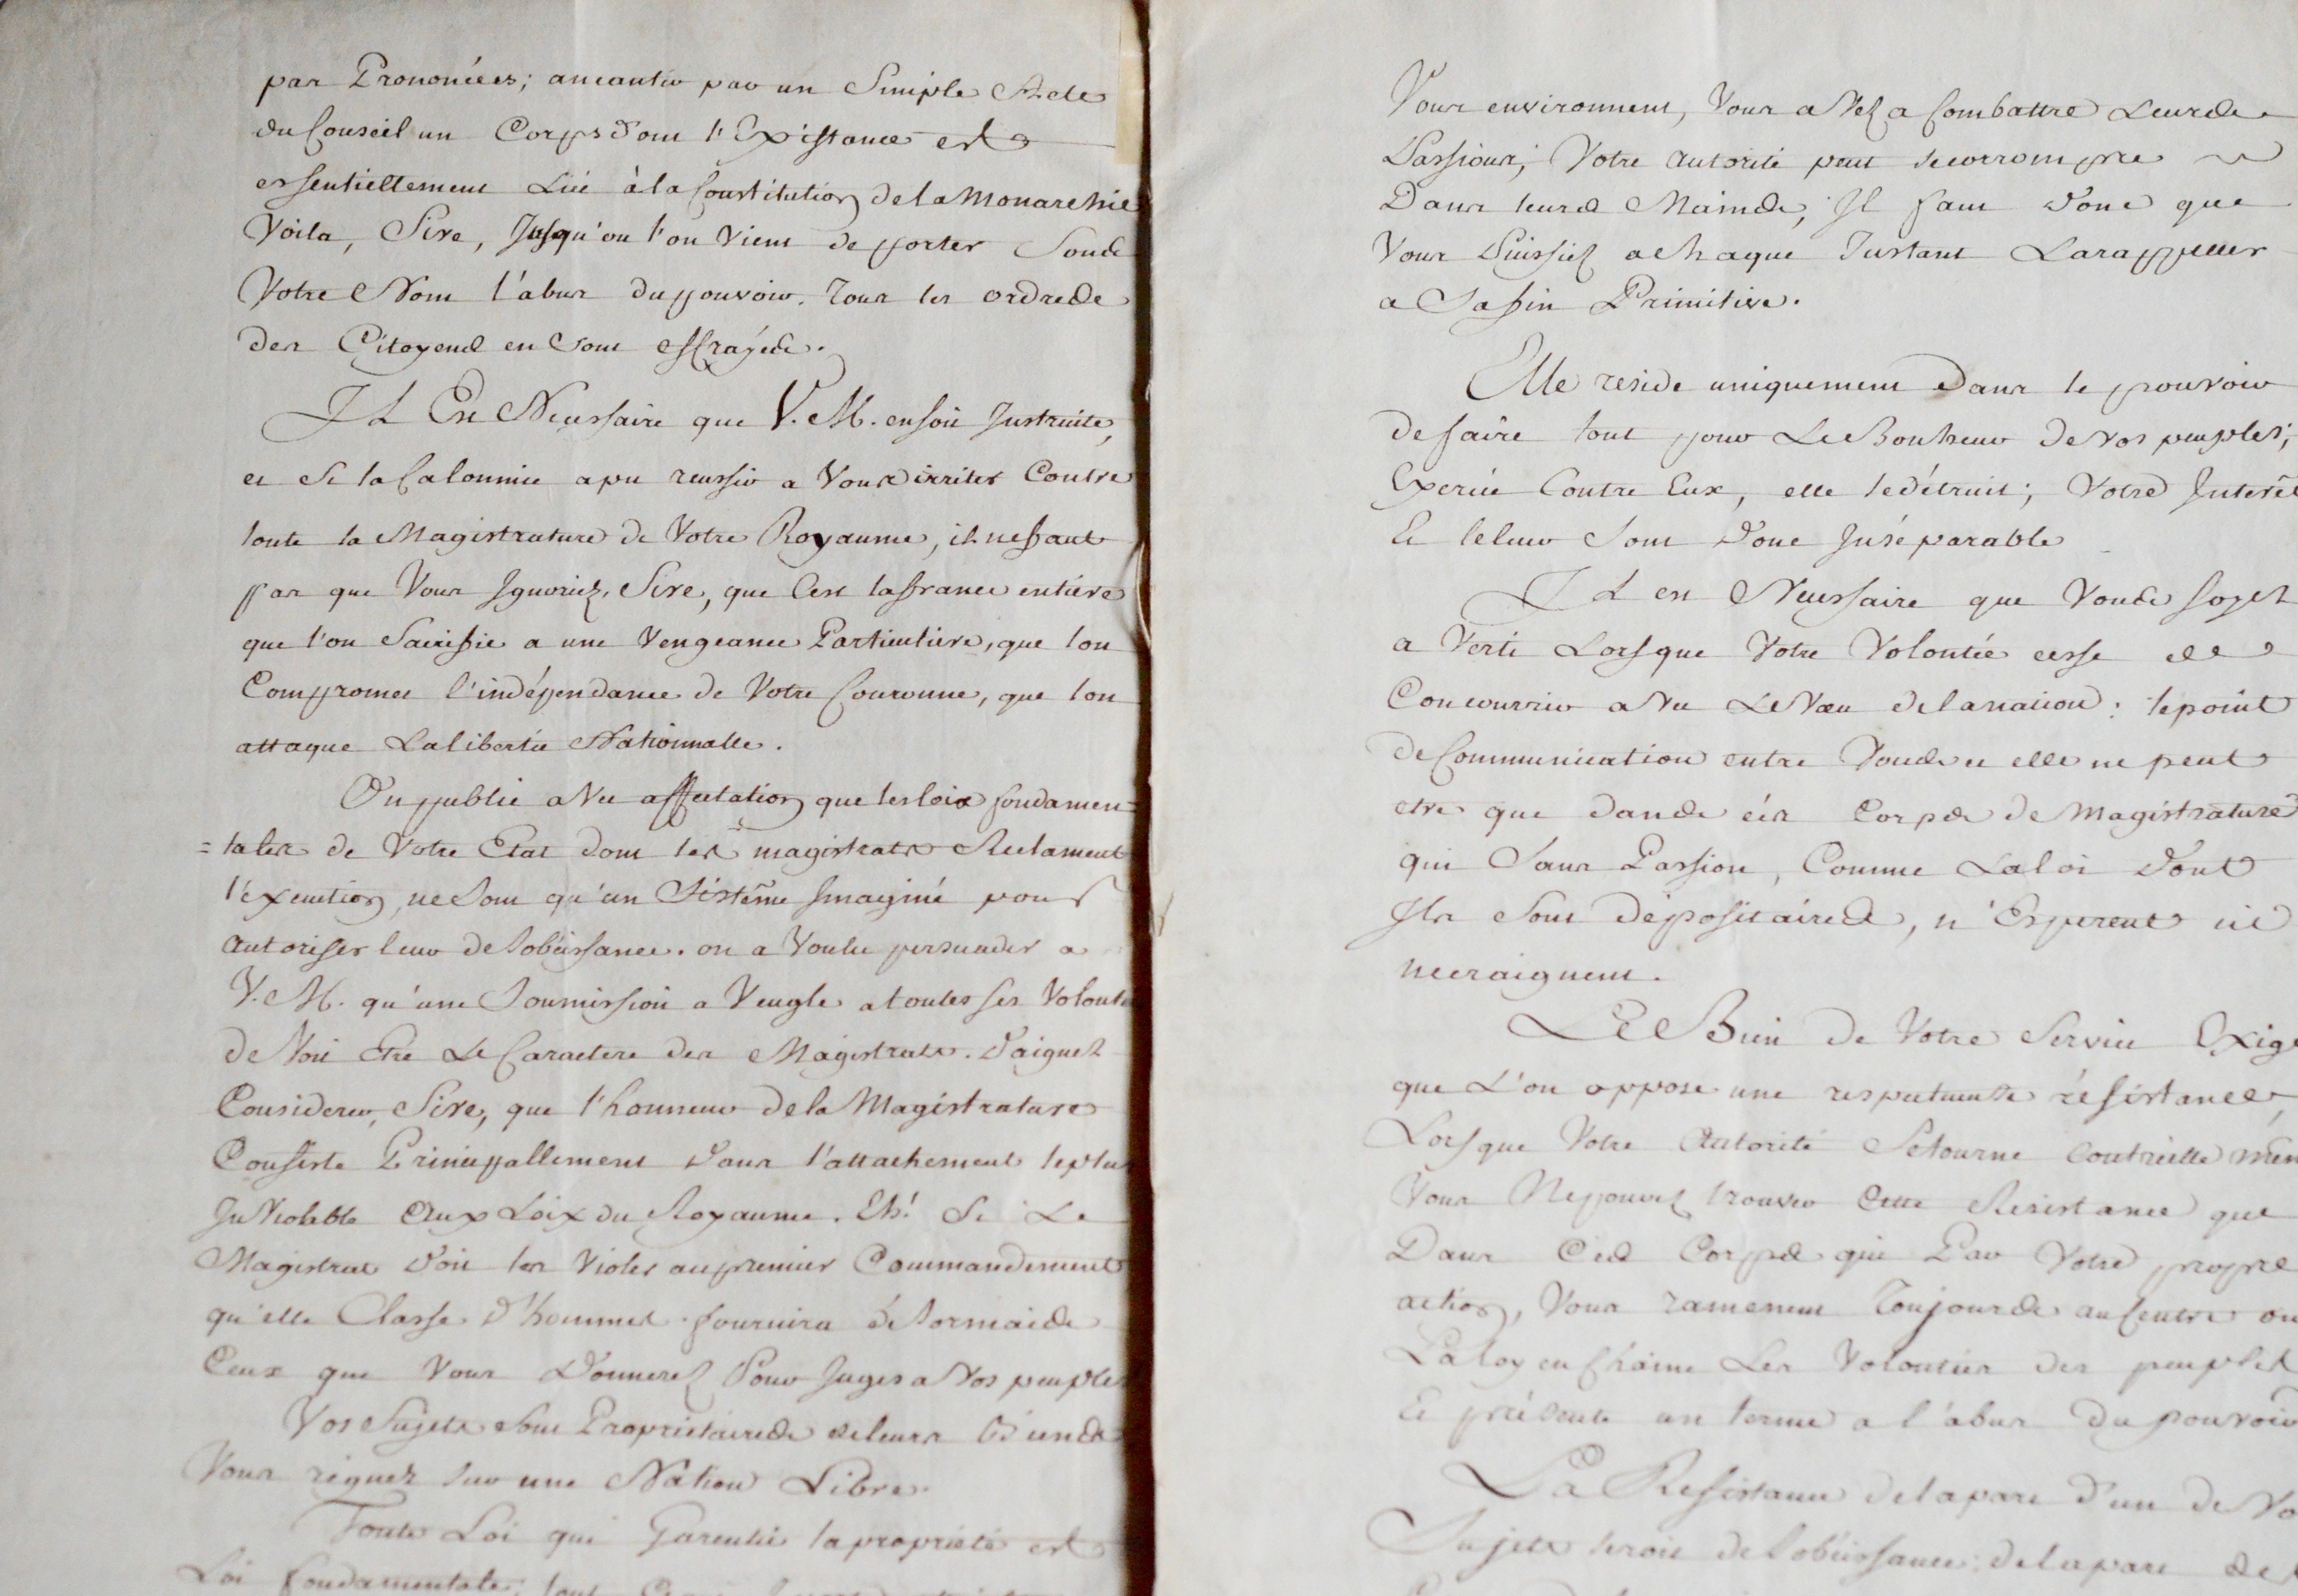 par Prononcées; aneantir par un Simple Acte
du Conseil un Corps dont l'Existance est
essentiellement Lié à la Constitution de la Monarchie
Voila, Sire, Jusqu'ou l'on Vient de porter Sous
Votre Nom l'abus du pouvoir. Tous les ordres
des Citoyens en sont effrayés.
Il Est Necessaire que V. M. en soit Instruite,
et Si la Calomnie a pu reussir a Vous irriter Contre
toute la Magistrature de Votre Royaume, il ne faut
pas que Vous Ignoriez, Sire, que C'est la france entiere
que l'on Sacrifie a une Vengeance Particuliere, que l'on
Compromet l'indépendance de Votre Couronne, que l'on
attaque La libertée Nationnalle.
On publie avec affectation que les loix fondamen=
=tales de Votre Etat dont les magistrats Reclament
l'execution, ne sont qu'un Sistême Imaginé pour
autoriser leur desobéissance. on a Voulu persuader a
V. M. qu'une Soumission aVeugle a toutes ses Volontés
devoit Etre Le Caractere des Magistrats. Daignez
Considerer, Sire, que l'honneur de la Magistrature
Consiste Principallement dans l'attachement le plus
Inviolable Aux Loix du Royaume. Eh! Si Le
Magistrat doit les Violer au premier Commandement
qu'elle Classe d'hommes fournira désormais
Ceux que Vous Donnerez Pour Juges a Vos peuples
Vos Sujets sont Proprietaires de leurs Biens
Vous régnez sur une Nation Libre.
Toute Loi qui Garentie la propriété est
Loi fondamentale; tout
Vous environnent, Vous aVez a Combattre Leurs
Passions; Votre autorité peut se corrompre
Dans leurs Mains, Il faut donc que
Vous Puissiez a chaque Instant La rappeller
a Sa fin Primitive.
Elle reside uniquement Dans le pouvoir
de faire tout pour Le Bonheur de vos peuples;
Exercée Contre Eux, elle se détruit; Votre Interêt
Et le leur Sont donc Inséparable
Il est Necessaire que Vous soyez
aVerti Lorsque Votre Volontée cesse de
Concourrir aVec Le Vœu de la nation: le point
de Communication entre Vous et elle ne peut
etre que dans ces Corps de Magistrature
qui Sans Passion, Comme La loi dont
Ils Sont dépositaires, n'Esperent ni
ne craignent.
Le Bien de Votre Service Exige
que L'on oppose une respectueuse résistance,
Lorsque Votre Autorité Se tourne Contr'elle mêm
Vous Ne pouvez trouver Cette Resistance que
Dans Ces Corps qui Par Votre propre
action, Vous ramenent Toujours au Centre ou
La loy enchaine Les Volontées des peuples
Et présente un terme a l'abus du pouvoir
La Resistance de la part d'un de Vo
Sujets seroit desobéissance; de la part des